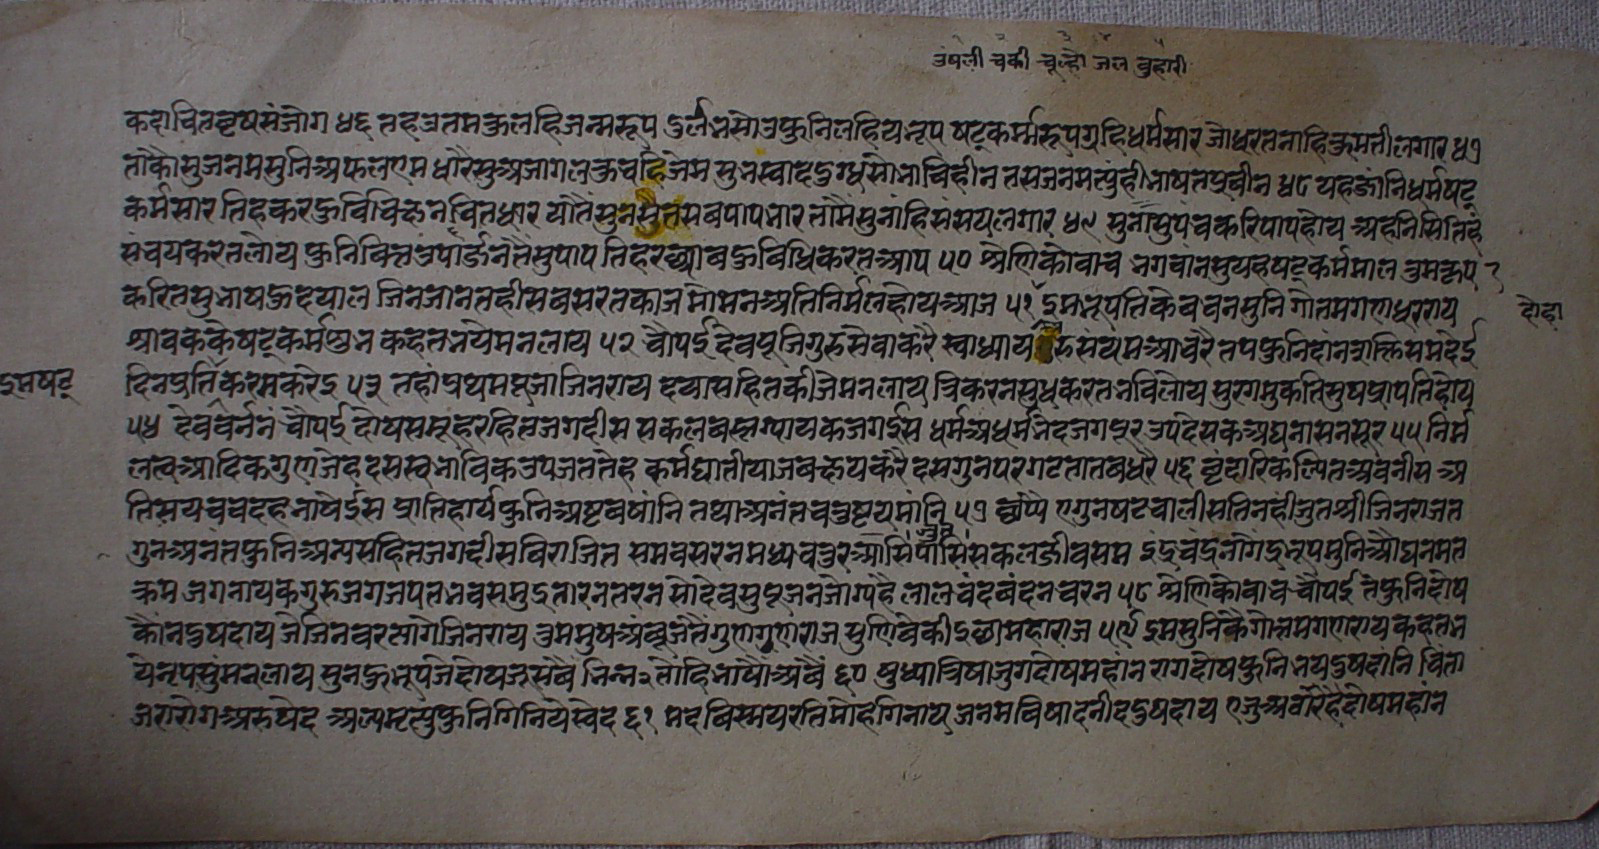 उंषली चंकी चूल्हौ जल बुहारी
कदाचित वृषसंजोग ४६ तहउतमकुललहिजन्मरूप दुर्लभसोउफुनिलहियभूप षट्कर्म्मरूपगृहिधर्मसार जोधरतनाहिकुमतीलगार ४७
ताकौसुजनमसुनिअफलएम धारैसुअजागलकुचहिजेम सुभस्वाददुग्धसोभाविहीन तसजनममत्पुंहीभाषतप्रवीन ४८ यहजांनिधर्मषट्
कर्मसार तिहकरऊविविधिजनचितधार यातैसुनसुनतसबपापभार तामैसुनांहिसंसयलगार ४९ सुनासुपंचकरिपापहोय अहनिसितिहं
संचयकरतलोय फुनिवित्तउपार्जनतैसुपाप तिहरछाबऊविधिकरतआप ५० श्रेणिकोवाच भगवांनसुयहषट्कर्ममाल तुमकृप
करितसुभाषऊदयाल जिनजानतहीसबसरतकाज मोमनअतिनिर्मलहोयआज ५१ इमभूपतिकेबचनसुनि गौतमगणधरराय
दोहा
श्रावककेषट्कर्मशुभ कहतभयेमनलाय ५२ चौपई देवपूजिगुरुसेवाकरै स्वाध्याय रुसंयमआचरै तपफुनिदांनशक्तिसमदेई
इमषट्
दिनप्रतिकर्मकरेइ ५३ तहांप्रथमपूजाजिनराय दयासहितकीजेमनलाय त्रिकरनसुधकरतभविलोय सुरगमुकतिसुषप्रापतिहोय
५४ देववर्ननं चौपई दोषसमूहरहितजगदीस सकलवस्तुग्यायकजगईस धर्मअधर्मभेदजगपूर उपदेसकअघनासनसूर ५५ निर्म
लत्वआदिकगुणजेह दसस्वभाविकउपजततेह कर्मघातीयाजबक्षयकरै दसगुनपरगटतातबधरै ५६ वृंदारिकल्पितअवंनीस अ
तिसयचवदहभाषेईस प्रातिहार्यफुनिअष्टवषांनि तथाअनंतचतुष्टयमांनि ५७ छप्पै एगुनषटचालीसतिनहीजुतश्रीजिनराजत
गुनअनंतफुनिअन्यसहितजगदीसबिराजित समवसरनमध्यचतुरआसि पासिसकलजीवसम इंद्रचंद्रनागेंद्रभूपमुनिऔघनमत
क्रम जगनायकगुरुजगजपतभवसमुद्रतारनतरन सोदेवसुपूजनजोग्यहै लालचंदबंदनचरन ५८ श्रेणिकोवाच चौपई तेफुनिदोष
कौनदुषदाय जेजिनवरत्यागेजिनराय तुममुषअंबूजतैगुणगणराज सुणिवेकीइछामहाराज ५९ इमसुनिकैगौतमगणराय कहतभ
येनृपसुंमनलाय सुनऊभूपजेदोषजुसबै भिन्न२तोहिभाषौअबै ६० षुध्यात्रिषाजुगदोषमहांन रागदोषफुनिभयदुषदांनि चिंता
जरारोगअरुषेद अल्पमृत्युफुनिगिनियेस्वेद ६१ मदबिस्मयरतिमोहगिनाय जनमबिषादनीददुषदाय एजुअवौरैहैदोषमहांन